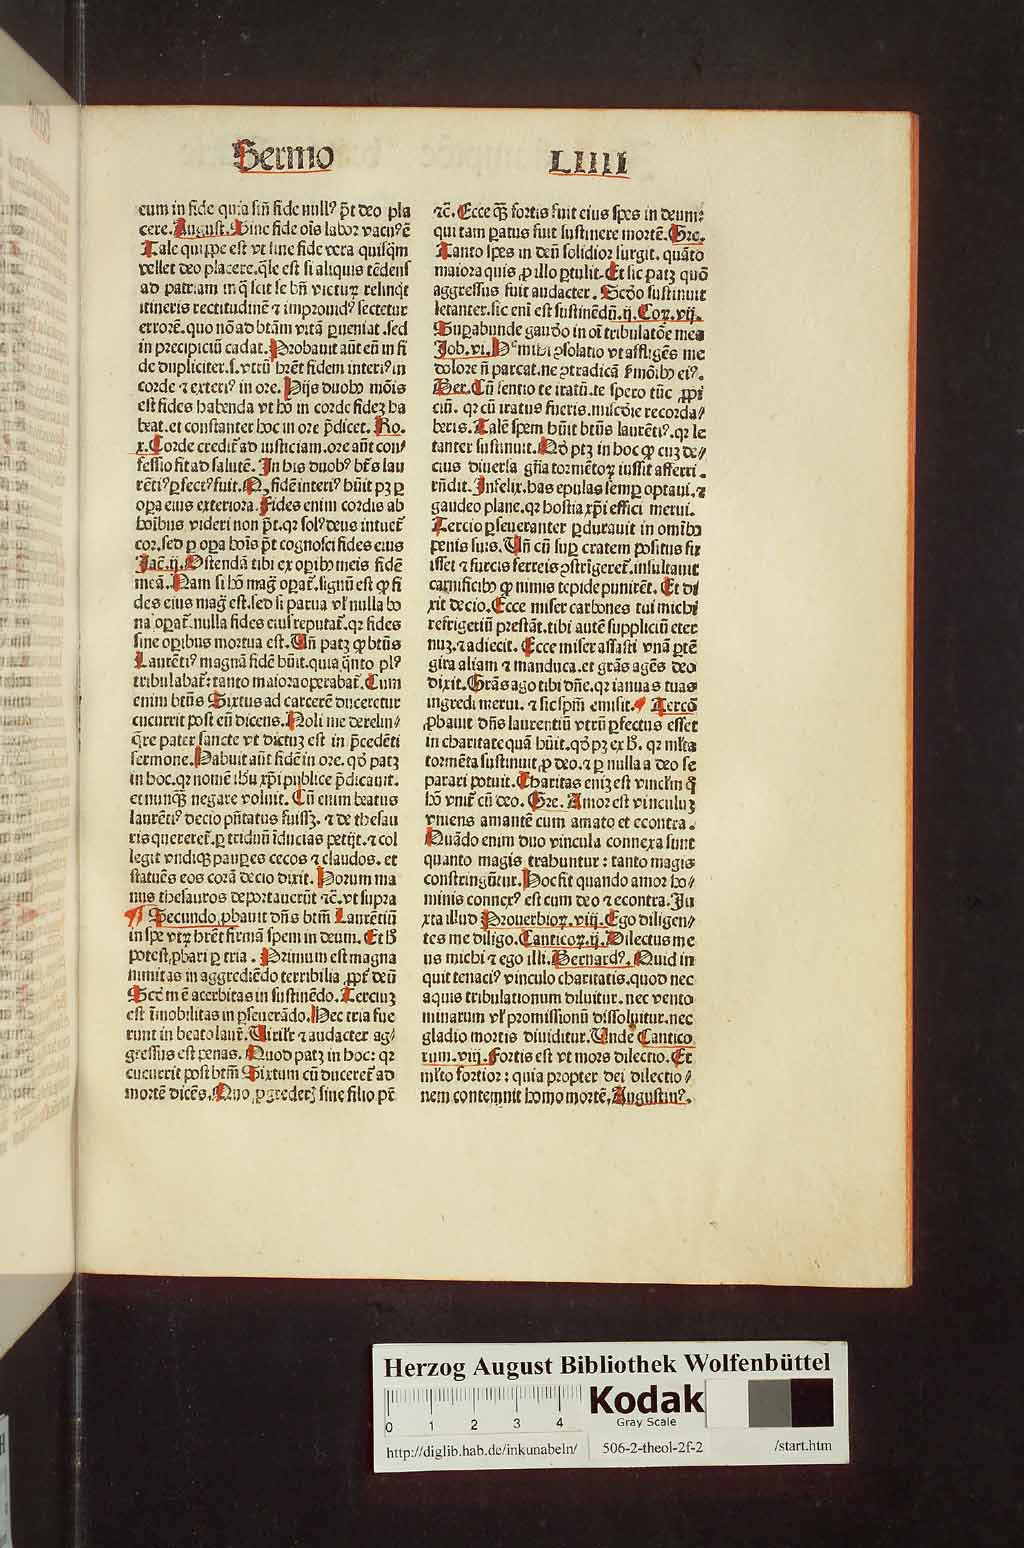 Sermo
LIIII
eum in fide quia sin̄ fide nullꝰ p̄t deo pla
cere. August. Sine fide oīs labor vacuꝰ ē
Tale quippe est vt sine fide vera quisq̄m
vellet deo placere. q̄le est si aliquis tēdens
ad patriam in q̄ scit se bn̄ victuꝝ relinq̄t
itineris rectitudinē ⁊ improuidꝰ sectetur
errorē. quo nō ad btām vitā ꝑueniat. sed
in precipiciū cadat. Probauit aūt eū in fi
de dupliciter. s. vtrū hr̄et fidem interiꝰ in
corde ⁊ exteriꝰ in ore. Hijs duobꝰ mōis
est fides habenda vt hō in corde fideꝫ ha
beat. et constanter hoc in ore p̄dicet. Ro.
x. Corde credit᷑ ad iusticiam. ore aūt con⸗
fessio fit ad salutē. In his duobꝰ bt̄s lau
rētiꝰ ꝑfectꝰ fuit. Nꝫ fidē interiꝰ hūit pꝫ ꝑ
oꝑa eius exteriora. Fides enim cordis ab
hoībus videri non p̄t. qꝛ solꝰ deus intuet᷑
cor. sed ꝑ oꝑa hoīs p̄t cognosci fides eius
Jac̄. ij. Ostendā tibi ex oꝑibꝰ meis fidē
meā. Nam si hō maḡ oꝑat᷑. signū est ꝙ fi
des eius maḡ est. sed si parua vl̓ nulla bo
na oꝑat᷑. nulla fides eiuſ reputat᷑. qꝛ fides
sine oꝑibus mortua est. Un̄ patꝫ ꝙ btūs
Laurētiꝰ magnā fidē hūit. quia q̄nto plꝰ
tribulabat᷑: tanto maiora oꝑerabat᷑. Cum
enim btūs Sixtus ad carcerē duceretur
cucurrit post eū dicens. Noli me derelin⸗
q̄re pater sancte vt dictuꝫ est in p̄cedēti
sermone. Habuit aūt fidē in ore. qđ patꝫ
in hoc. qꝛ nomē ihu xp̄i publice p̄dicauit.
et nunq̄ȝ negare voluit. Cū enim beatus
laurētiꝰ decio pn̄tatus fuissꝫ. ⁊ de thesau
ris quereret᷑. ꝑ triduū īducias petijt. ⁊ col
legit vndiqꝫ pauꝑes cecos ⁊ claudos. et
statuēs eos corā decio dixit. Horum ma
nus thesauros deportauerūt ⁊c̄. vt supra
¶ Secundo ꝓbauit dn̄s btm̄ Laurētiū
in spe vtꝝ hr̄et firmā spem in deum. Et hꝭ
potest ꝓbari ꝑ tria. Primum est magna
nimitas in aggrediēdo terribilia ꝓpt᷑ deū
Scd̄m ē acerbitas in sustinēdo. Terciuꝫ
est īmobilitas in ꝑseuerādo. Hec tria fue
runt in beato laur̄. Uirilr̄ ⁊ audacter ag⸗
gressus est penas. Quod patꝫ in hoc: qꝛ
cucurrit post btm̄ Sixtum cū duceret᷑ ad
mortē dicēs. Quo ꝓgrederꝭ sine filio pr̄
⁊c̄. Ecce q̄ȝ fortis fuit eius spes in deum:
qui tam ꝑatus fuit sustinere mortē. Gre.
Tanto spes in deū solidior surgit. quāto
maiora quis ꝓ illo ꝑtulit. Et sic patꝫ quō
aggressus fuit audacter. Scđo sustinuit
letanter. sic enī est sustinēdū. ij. Coꝝ. vij.
Suꝑabunde gaudeo in oī tribulatōe mea
Job. vi. Hᵉ mihi ꝯsolatio vt affligēs me
dolore nō parcat. ne ꝯtradicā ſmōibꝰ eiꝰ.
Ber. Cū sentio te iratū. te spero tūc ꝓpi
ciū. qꝛ cū iratus fueris. miscđie recorda⸗
beris. Talē spem hūit btūs laurētiꝰ. qꝛ le
tanter sustinuit. Qđ ptꝫ in hoc ꝙ cuꝫ de⸗
cius diuersa gn̄a tormētoꝝ iussit afferri.
rn̄dit. Infelix. has epulas semꝑ optaui. ⁊
gaudeo plane. qꝛ hostia xp̄i effici merui.
Tercio ꝑseueranter ꝑdurauit in omībꝰ
penis suis. Un̄ cū suꝑ cratem positus fu
isset ⁊ furcis ferreis ꝯstrigeret᷑. insultauit
carnificibꝰ ꝙ nimis tepide punirēt. Et di
xit decio. Ecce miser carbones tui michi
refrigeriū prestāt. tibi autē suppliciū eter
nuꝫ. ⁊ adiecit. Ecce miser assasti vnā ꝑtē
gira aliam ⁊ manduca. et grās agēs deo
dixit. Grās ago tibi dn̄e. qꝛ ianuas tuas
ingredi merui. ⁊ sic spm̄ emisit. ¶ Tercō
ꝓbauit dn̄s laurentiū vtrū ꝑfectus esset
in charitate quā hūit. qđ pꝫ ex hꝭ. qꝛ ml̓ta
tormēta sustinuit ꝓ deo. ⁊ ꝑ nulla a deo se
parari potuit. Charitas eniꝫ est vincl̓m q̄
hō vnit᷑ cū deo. Gre. Amor est vinculuꝫ
vniens amantē cum amato et econtra.
Quādo enim duo vincula connexa sunt
quanto magis trahuntur: tanto magis
constringūtur. Hoc fit quando amor ho⸗
minis connexꝰ est cum deo ⁊ econtra. Ju
xta illud Prouerbioꝝ. viij. Ego diligen⸗
tes me diligo. Canticoꝝ. ij. Dilectus me
us michi ⁊ ego illi. Bernardꝰ. Quid in
quit tenaciꝰ vinculo charitatis. quod nec
aquis tribulationum diluitur. nec vento
minarum vl̓ promissionū dissoluitur. nec
gladio mortis diuiditur. Unde Cantico
rum. viij. Fortis est vt mors dilectio. Et
ml̓to fortior: quia propter dei dilectio⸗
nem contemnit homo mortē. Augustinꝰ.
Herzog August Bibliothek Wolfenbüttel
0 1 2 3 4
Kodak
Gray Scale
http://diglib.hab.de/inkunabeln/
506-2-theol-2f-2
/start.htm